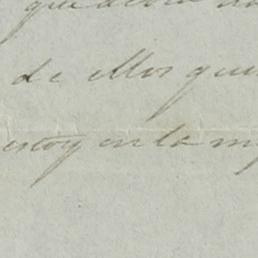 que
de ellos que
estoy en la m